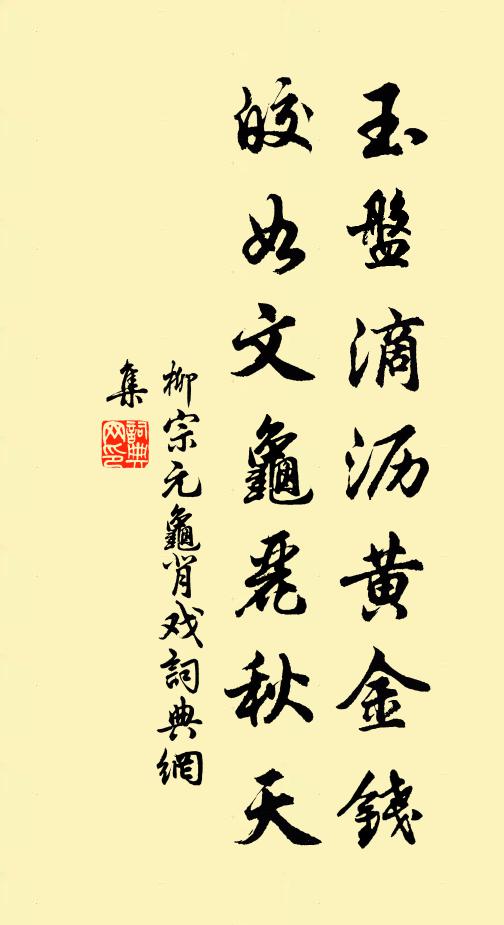 玉盤滴沥黄金錢
皎如文龜麗秋天
柳宗元龜背戏詞典網
集
詞典
网印